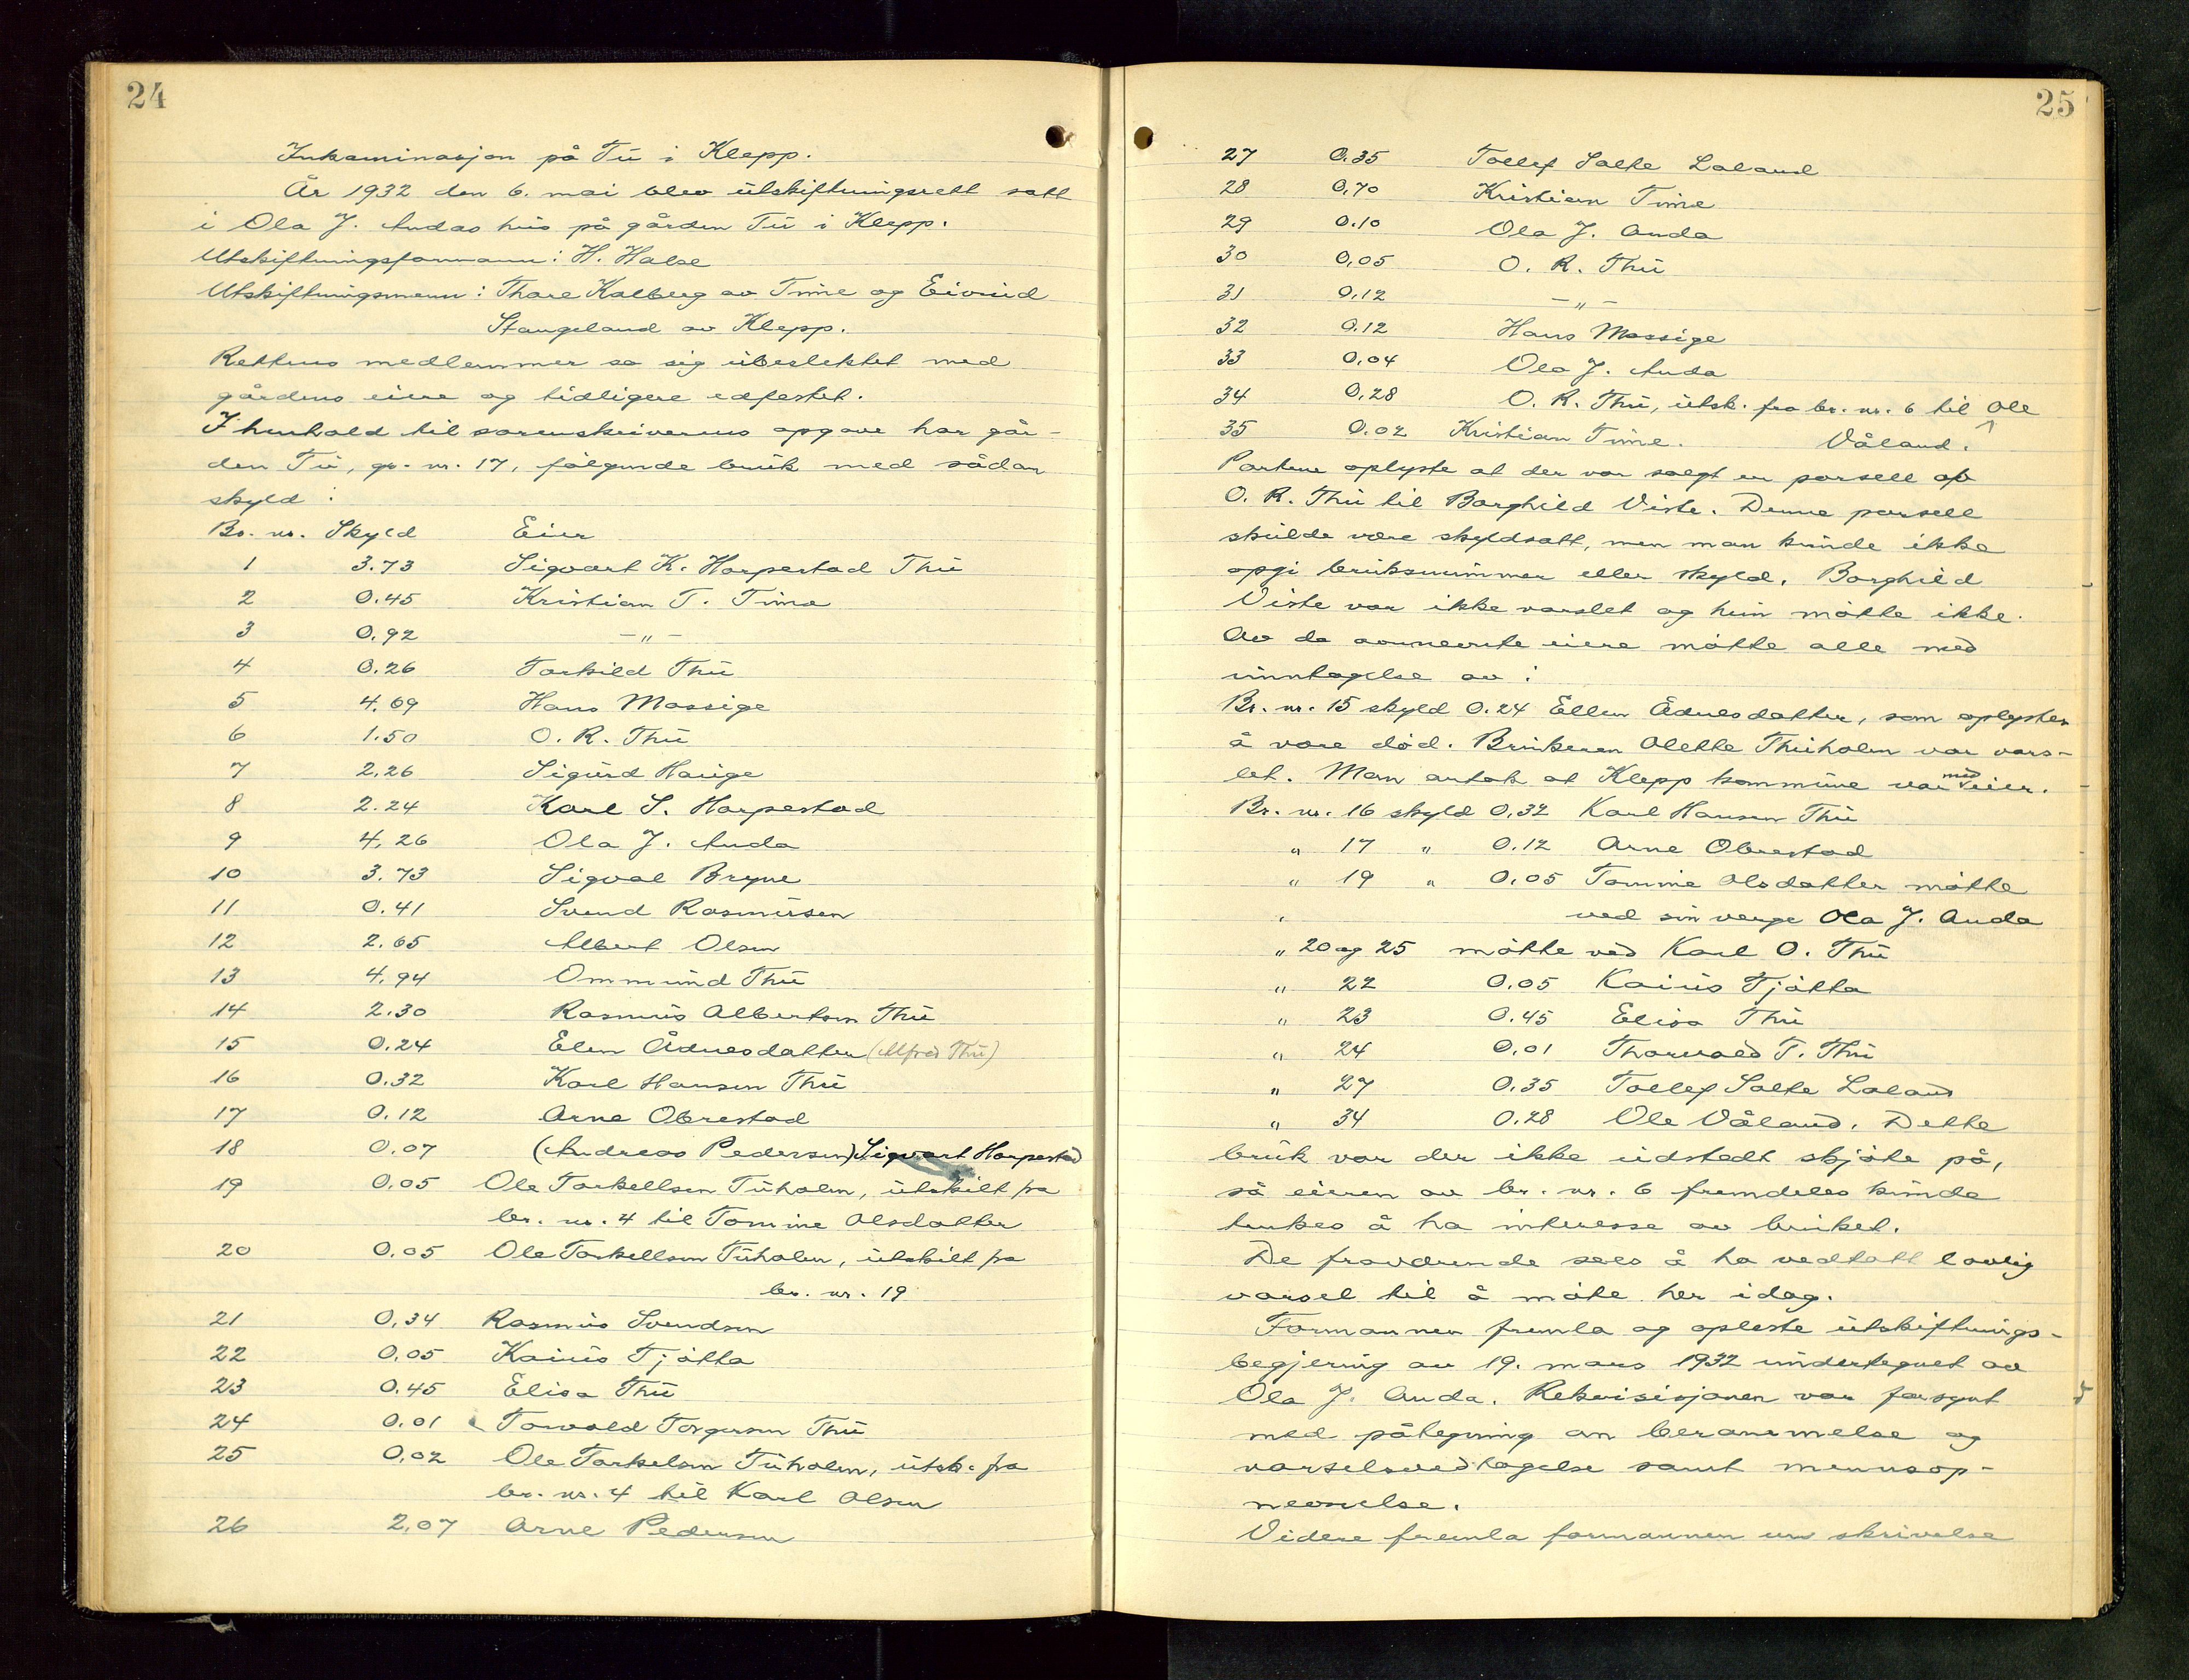 24
Inkaminasjon på Tu i Klepp.
År 1932 den 6. mai blev utskiftningsrett satt
i Ola J. Andas hus på gården Tu i Klepp.
Utskiftningsformann: H. Halse
Utskiftningsmenn: Thore Kalberg av Time og Eivind
Stangeland av Klepp.
Rettens medlemmer sa sig ubeslektet med
gårdens eiere og tidligere edfestet.
I henhold til sorenskriverens opgave har går-
den Tu, gr. nr. 17, følgende bruk med sådan
skyld:
Br. nr. Skyld Eier
1 3.73 Sigvart K. Harpestad Thu
2 0.45 Kristian T. Time
3 0.92 -"-
4 0.26 Torkild Thu
5 4.69 Hans Mossige
6 1.50 O. R. Thu
7 2.26 Sigurd Hauge
8 2.24 Karl S. Harpestad
9 4.26 Ola J. Anda
10 3.73 Sigval Bryne
11 0.41 Svend Rasmussen
12 2.65 Albert Olsen
13 4.94 Ommund Thu
14 2.30 Rasmus Albertsen Thu
15 0.24 Elen Ådnesdatter (Alfred Thu)
16 0.32 Karl Hansen Thu
17 0.12 Arne Obrestad
18 0.07 (Andreas Pedersen) Sigvart Harpestad
19 0.05 Ole Torkellsen Tuholen, utskilt fra
br. nr. 4 til Tomine Olsdatter
20 0.05 Ole Torkellsen Tuholen, utskilt fra
br. nr. 19
21 0.34 Rasmus Svendsen
22 0.05 Kaius Tjøtta
23 0.45 Elisa Thu
24 0.01 Torvald Torgersen Thu
25 0.02 Ole Torkelsen Tuholen, utsk. fra
br. nr. 4 til Karl Olsen
26 2.07 Arne Pedersen
25
27 0.35 Tollef Salte Laland
28 0.70 Kristian Time
29 0.10 Ola J. Anda
30 0.05 O. R. Thu
31 0.12 -"-
32 0.12 Hans Mossige
33 0.04 Ola J. Anda
34 0.28 O. R. Thu, utsk. fra br. nr. 6 til Ole
35 0.02 Kristian Time. Våland.
Partene oplyste at der var solgt en parsell af
O. R. Thu til Borghild Viste. Denne parsell
skulde være skyldsatt, men man kunde ikke
opgi bruksnummer eller skyld. Borghild
Viste var ikke varslet og hun møtte ikke.
Av de ovennevnte eiere møtte alle med
unntagelse av:
Br. nr. 15 skyld 0.24 Ellen Ådnesdatter, som oplystes
å være død. Brukeren Olette Thuholen var vars-
let. Man antok at Klepp kommune var med eier.
Br. nr. 16 skyld 0.32 Karl Hansen Thu
" 17 " 0.12 Arne Obrestad
" 19 " 0.05 Tomine Olsdatter møtte
ved sin verge Ola J. Anda
" 20 og 25 møtte ved Karl O. Thu
" 22 0.05 Kaius Tjøtta
" 23 0.45 Elisa Thu
" 24 0.01 Thorvald T. Thu
" 27 0.35 Tollef Salte Laland
" 34 0.28 Ole Våland. Dette
bruk var der ikke udstedt skjøte på,
så eieren av br. nr. 6 fremdeles kunde
tenkes å ha interesse av bruket.
De fraværende sees å ha vedtatt lovlig
varsel til å møte her idag.
Formannen fremla og opleste utskiftnings-
begjering av 19. mars 1932 undertegnet av
Ola J. Anda. Rekvisisjonen var forsynt
med påtegning om berammelse og
varselsvedtagelse samt mennsop-
nevnelse.
Videre fremla formannen en skrivelse